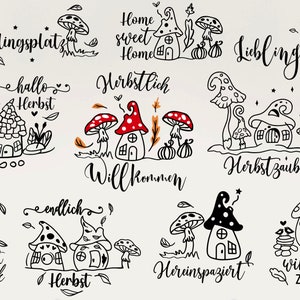 Home
sweet
Home
lingsplatz
Liebling
hallo
Herbst
Herbstlich
Willkommen
Herbstzaub
endlich
Herbst
Hereinspaziert
wi